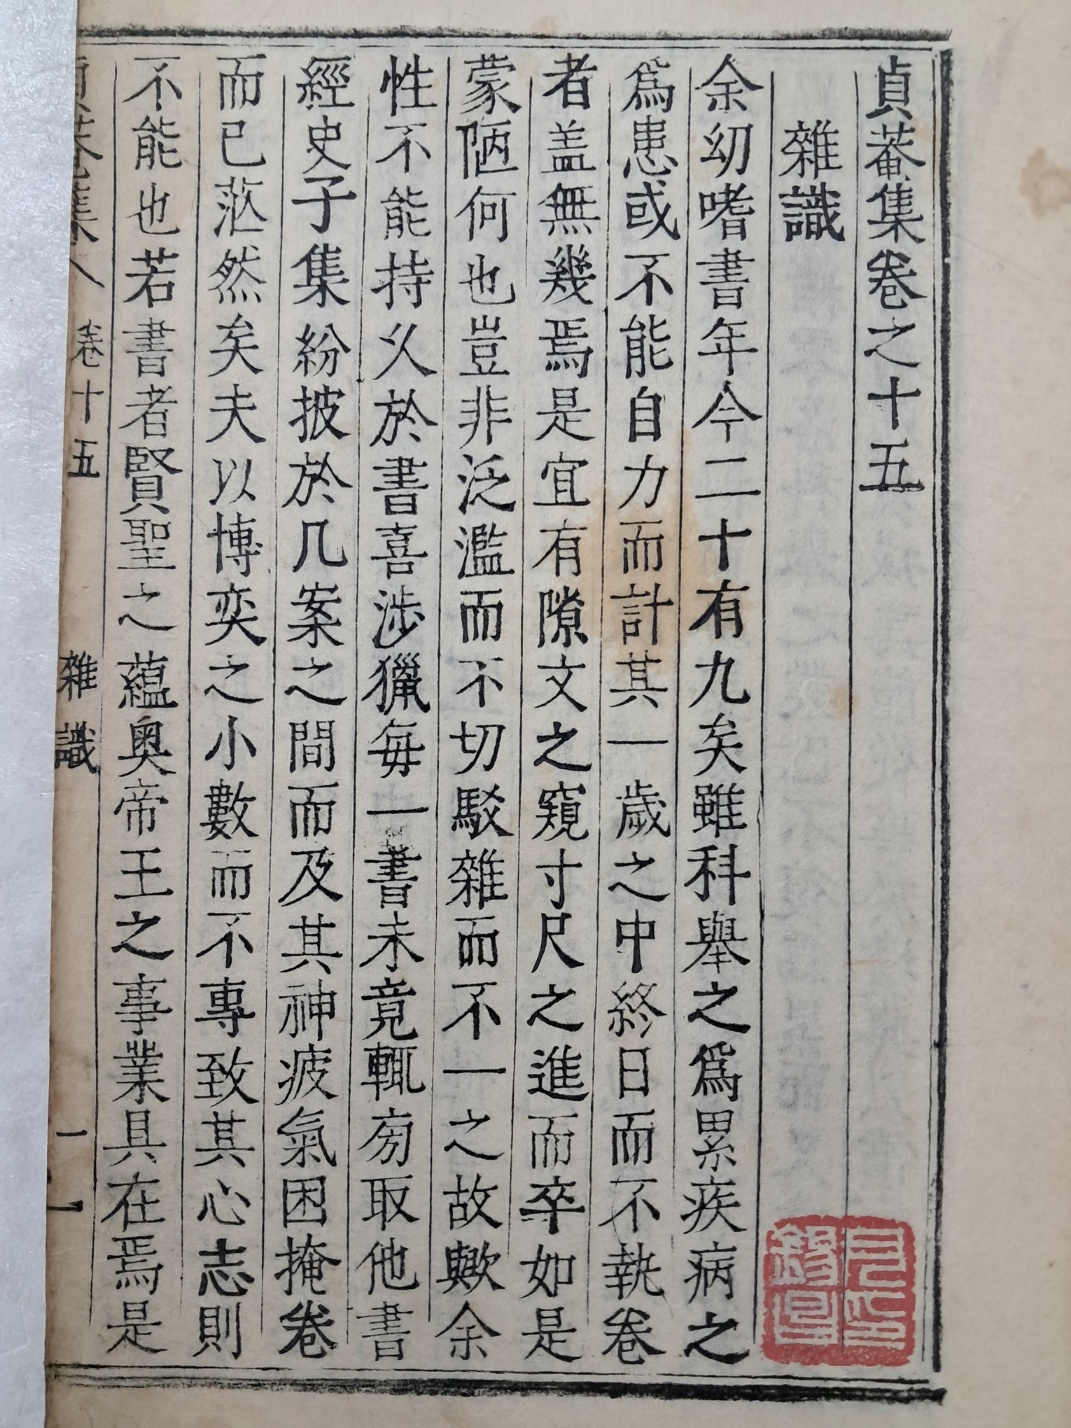 貞菴集卷之十五
雜識
余幼嗜書年今二十有九矣雖科舉之爲累疾病之
爲患或不能自力而計其一歲之中終日而不執卷
者盖無幾焉是宜有隙文之窺寸尺之進而卒如是
蒙陋何也豈非泛濫而不切駁雜而不一之故歟余
性不能持乆於書喜涉獵每一書未竟輒旁取他書
經史子集紛披於几案之間而及其神疲氣困掩卷
而已茫然矣夫以博奕之小數而不專致其心志則
不能也若書者賢聖之蘊奧帝王之事業具在焉是
貞菴集
卷十五
雜識
一